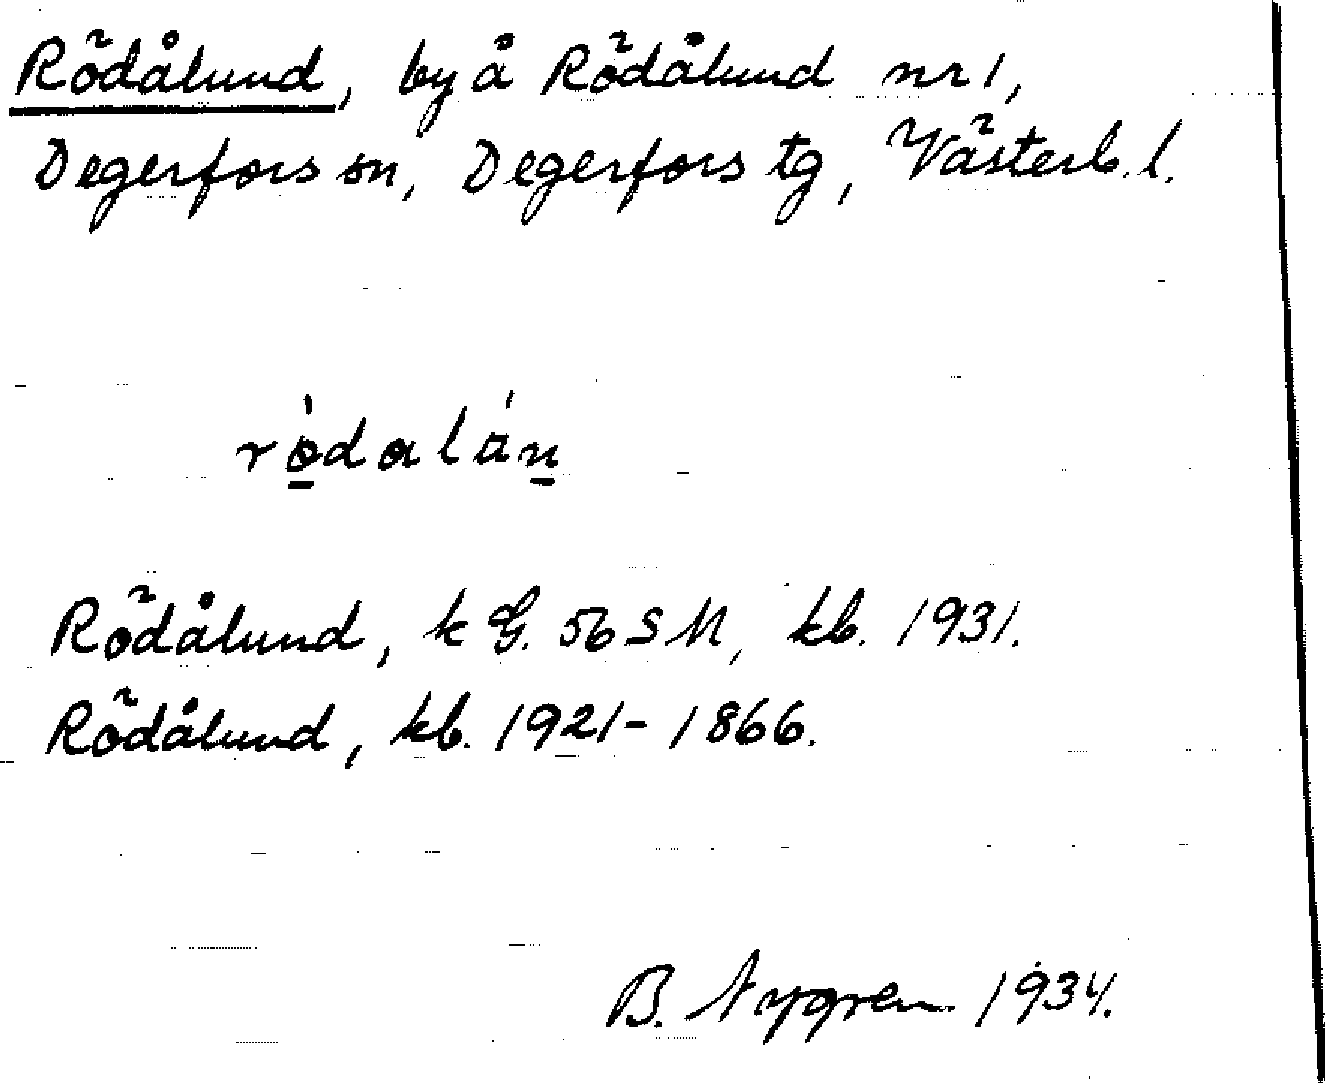 Rödålund, by å Rödålund nr 1,
Degerfors sn, Degerfors tg, Västerb. l.
Rödålund, k G. 56 S M, kb. 1931.
Rödålund, kb. 1921-1866.
B. Nygren 1934.